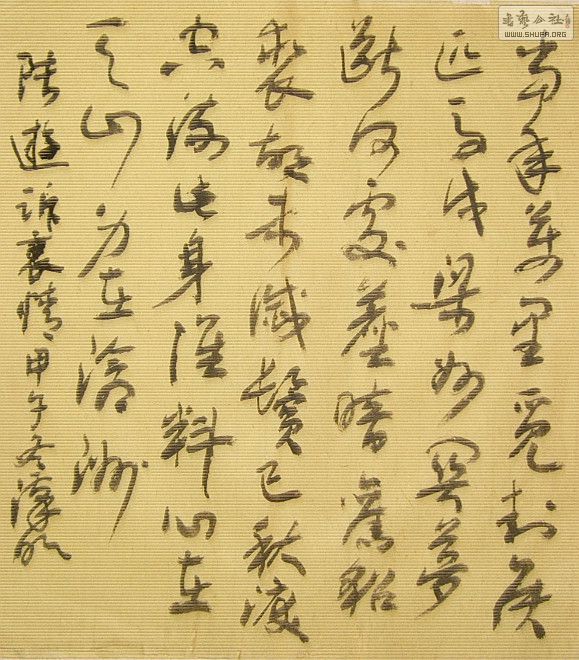 書藝公社
WWW.SHUFA.ORG
當年萬里覓封侯
匹馬戍梁州関夢
斷何處塵暗舊貂
裘胡未滅鬢已秋淚
空流此身誰料心在
天山身老滄洲
陸遊訴衷情甲午冬